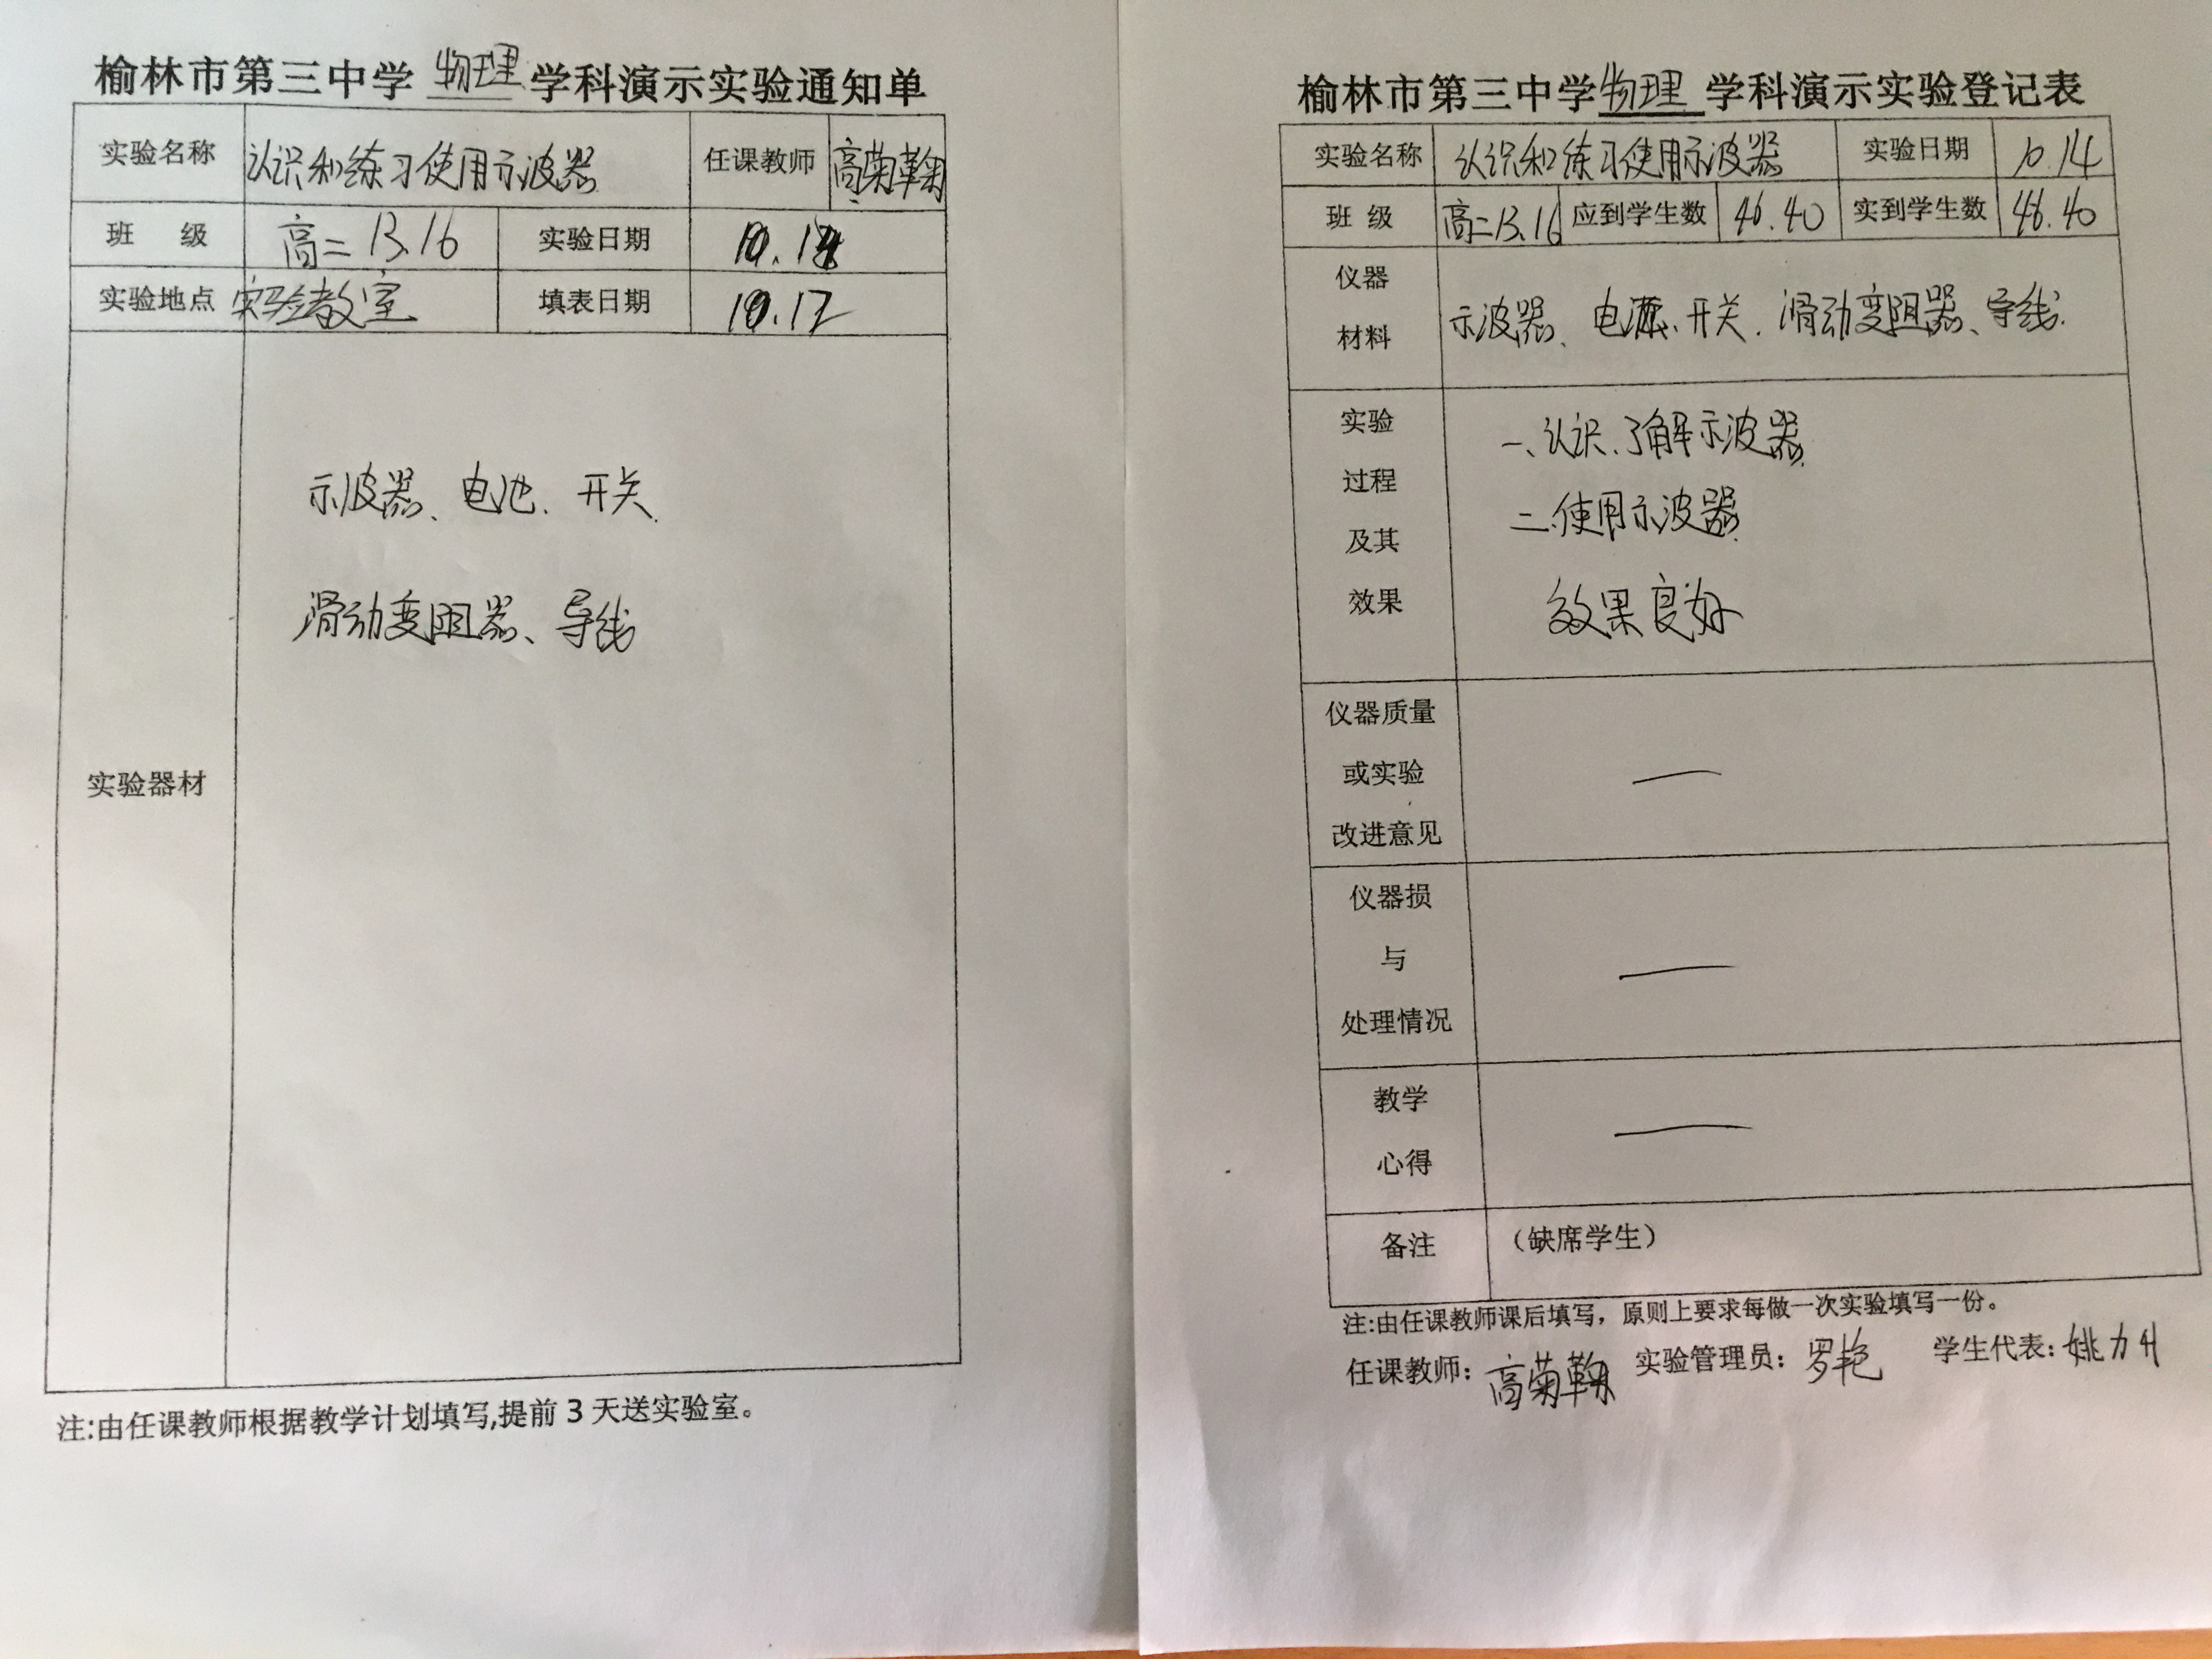 榆林市第三中学 物理 学科演示实验通知单
实验名称 认识和练习使用示波器 任课教师 高菊鞠
班 级 高二 13.16 实验日期 10.14
实验地点 实验教室 填表日期 10.12
实验器材
示波器、电池、开关
滑动变阻器、导线
注:由任课教师根据教学计划填写,提前 3 天送实验室。
榆林市第三中学 物理 学科演示实验登记表
实验名称 认识和练习使用示波器 实验日期 10.14
班 级 高二13.16 应到学生数 46.40 实到学生数 46.40
仪器
材料
示波器、电源、开关、滑动变阻器、导线
实验
过程
及其
效果
一、认识、了解示波器
二、使用示波器
效果良好
仪器质量
或实验
改进意见
—
仪器损
与
处理情况
—
教学
心得
—
备注 （缺席学生）
注:由任课教师课后填写，原则上要求每做一次实验填写一份。
任课教师：高菊鞠 实验管理员：罗艳 学生代表：姚力升